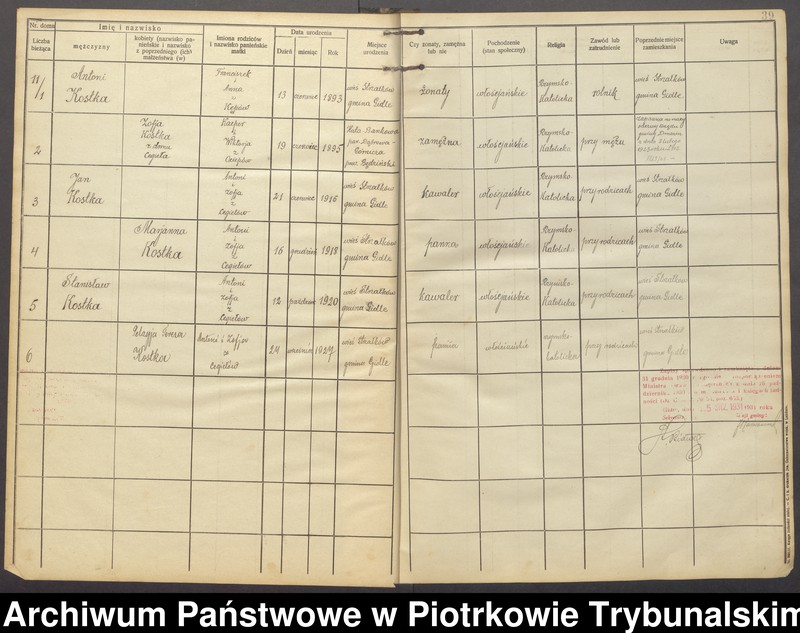 39
Nr. domu
Liczba bieżąca
Imię i nazwisko
mężczyzny
kobiety (nazwisko pa-
nieńskie i nazwisko
z poprzedniego (ich)
małżeństwa (w)
Imiona rodziców
i nazwisko panieńskie
matki
Data urodzenia
Dzień
miesiąc
Rok
Miejsce
urodzenia
Czy żonaty, zamężna
lub nie
Pochodzenie
(stan społeczny)
Religja
Zawód lub
zatrudnienie
Poprzednie miejsce
zamieszkania
Uwaga
11/1
Antoni
Kostka
Franciszek
i
Anna
z
13
czerwiec
1893
wieś Strzałków
gmina Gidle
żonaty
włościańskie
Rzymsko-
Katolicka
rolnik
wieś Strzałków
gmina Gidle
2
Zofja
Kostka
z domu
Cegieła
Kacper
i
Wiktorja
z
19
czerwiec
1895
Huta Bankowa
Dąbrowa-
Górnicza
pow. Będziński
zamężna
włościańskie
Rzymsko-
Katolicka
przy mężu
3
Jan
Kostka
Antoni
i
Zofja
z
Cegiełów
21
czerwiec
1916
wieś Strzałków
gmina Gidle
kawaler
włościańskie
Rzymsko-
Katolicka
przy rodzicach
wieś Strzałków
gmina Gidle
4
Marjanna
Kostka
Antoni
i
Zofja
z
Cegiełów
16
grudzień
1918
wieś Strzałków
gmina Gidle
panna
włościańskie
Rzymsko-
Katolick.
przy rodzicach
wieś Strzałków
gmina Gidle
5
Stanisław
Kostka
Antoni
i
Zofja
z
Cegiełów
12
1920
wieś Strzałków
gmina Gidle
kawaler
włościańskie
Rzymsko-
Katolicka
przy rodzicach
wieś Strzałków
gmina Gidle
6
Pelagja Teresa
Kostka
Antoni i Zofja
z
Cegiełów
24
wrzesień
1927
wieś Strzałków
gmina Gidle
panna
włościańskie
rzymsko-
katolicka
przy rodzicach
wieś Strzałków
gmina Gidle
11 grudnia
Ministra
1931 roku
Archiwum Państwowe w Piotrkowie Trybunalskim